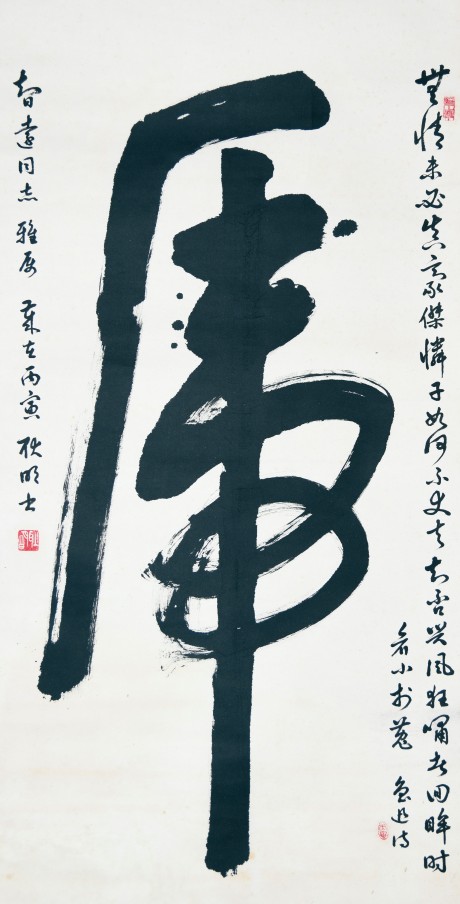 無情未必真豪傑憐子如何不丈夫知否興風狂嘯者回眸时
看小於菟 魯迅诗
虎
智遠同志雅屬 歲在丙寅